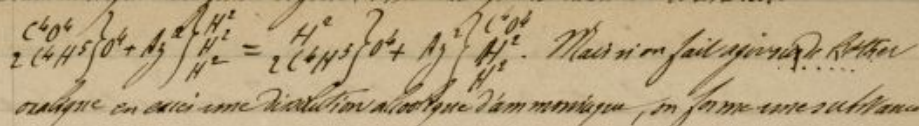 C⁴O⁴ / 2C⁴H⁵ } O⁴ + Az² { H² / H² / H² = H² / 2C⁴H⁵ } O⁴ + Az² { C⁴O⁴ / H² / H². Mais si on fait agir de l'Ether
oxalique en excès une dissolution alcoolique d'ammoniaque, on forme une substance